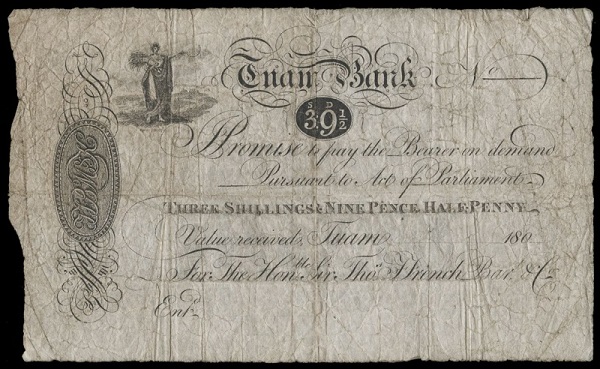 Tuam Bank No
S D
3.9 1/2
I Promise to pay the Bearer on demand
Pursuant to Act of Parliament
THREE SHILLINGS & NINE PENCE HALF-PENNY
Value received, Tuam 180
For The Honble. Sir Thos. Ffrench Bart. & Co.
Entd.